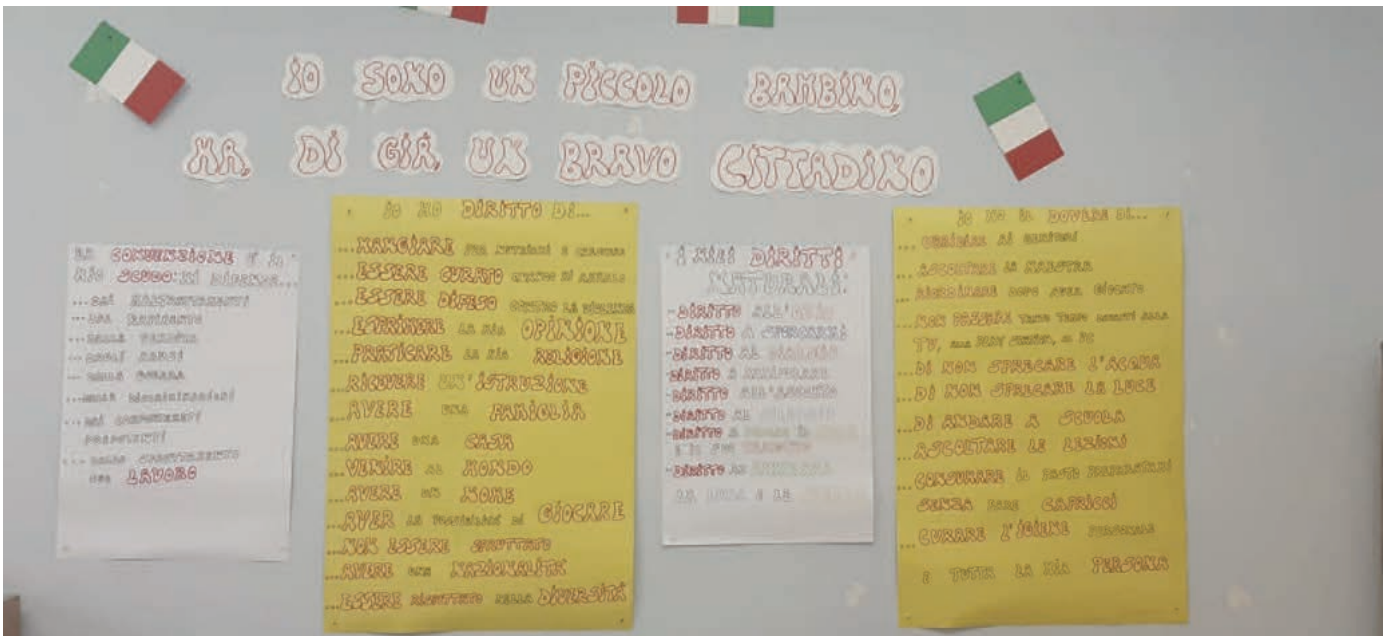 IO SONO UN PICCOLO BAMBINO,
MA, DI GIÁ, UN BRAVO CITTADINO
LA CONVENZIONE É IL
MIO SCUDO: MI DIFENDE...
...DAI MALTRATTAMENTI
...DAL RAPIMENTO
...DALLA VENDITA
...DAGLI ABUSI
...DALLA GUERRA
...DALLE DISCRIMINAZIONI
...DAI COMPORTAMENTI
PREPOTENTI
...DALLO SFRUTTAMENTO
DEL LAVORO
IO HO DIRITTO DI...
...MANGIARE PER NUTRIRMI E CRESCERE
...ESSERE CURATO QUANDO MI AMMALO
...ESSERE DIFESO CONTRO LA VIOLENZA
...ESPRIMERE LA MIA OPINIONE
...PRATICARE LA MIA RELIGIONE
...RICEVERE UN'ISTRUZIONE
...AVERE UNA FAMIGLIA
...AVERE UNA CASA
...VENIRE AL MONDO
...AVERE UN NOME
...AVER LA POSSIBILITÁ DI GIOCARE
...NON ESSERE SFRUTTATO
...AVERE UNA NAZIONALITÁ
...ESSERE RISPETTATO NELLA DIVERSITÁ
I MIEI DIRITTI
NATURALI:
-DIRITTO ALL'OZIO
-DIRITTO A SPORCARMI
-DIRITTO AL
-DIRITTO A
-DIRITTO ALL'ASCOLTO
-DIRITTO AL
-DIRITTO A
-DIRITTO AL
IO HO IL DOVERE DI...
... UBBIDIRE AI GENITORI
... ASCOLTARE LA MAESTRA
... RIORDINARE DOPO AVER GIOCATO
...NON PASSARE TROPPO TEMPO DAVANTI ALLA
TV, ALLA PLAY STATION, AL PC
...DI NON SPRECARE L'ACQUA
...DI NON SPRECARE LA LUCE
...DI ANDARE A SCUOLA
ASCOLTARE LE LEZIONI
...CONSUMARE IL PASTO
SENZA FARE CAPRICCI
...CURARE L'IGIENE PERSONALE
E TUTTA LA MIA PERSONA